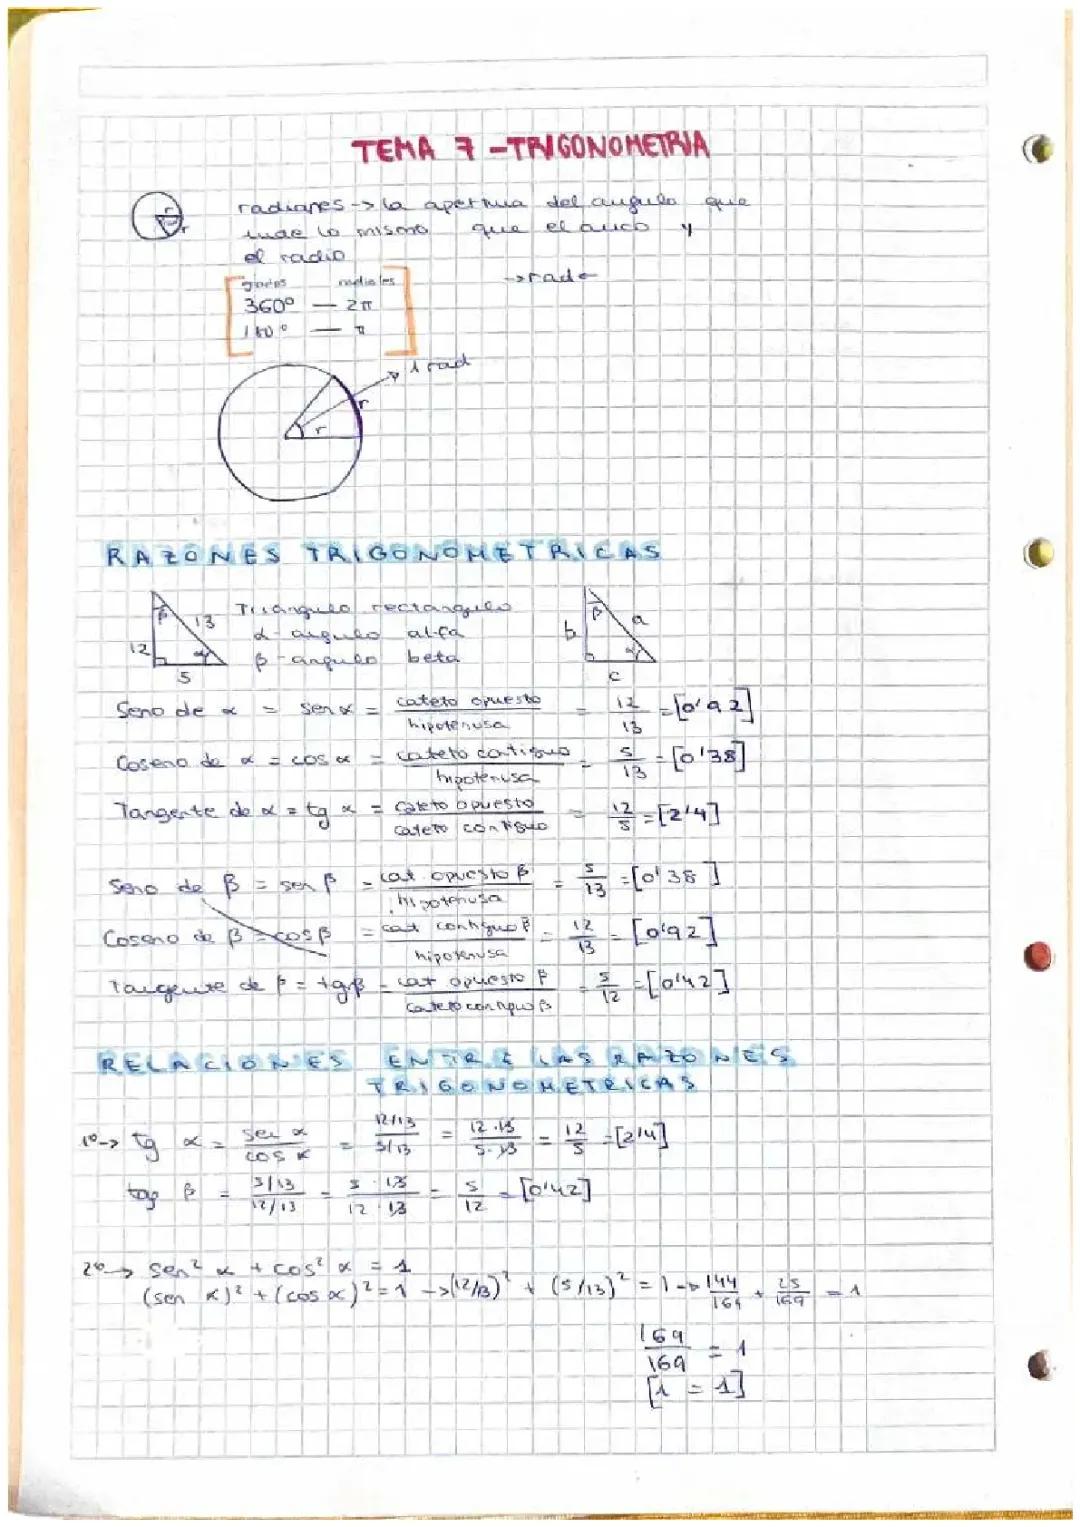 TEMA 7 - TRIGONOMETRIA
r
r
radianes -> la apertura del angulo que
mide lo mismo que el arco y
el radio
grados radiales
-> rad
360º — 2π
180º — π
1 rad
r
r
RAZONES TRIGONOMETRICAS
Triangulo rectangulo
α - angulo alfa
β - angulo beta
β 13 12 α 5
β a b α c
Seno de α = sen α = cateto opuesto / hipotenusa = 12/13 = [0'92]
Coseno de α = cos α = cateto contiguo / hipotenusa = 5/13 = [0'38]
Tangente de α = tg α = cateto opuesto / cateto contiguo = 12/5 = [2'4]
Seno de β = sen β = cat opuesto β / hipotenusa = 5/13 = [0'38]
Coseno de β = cos β = cat contiguo β / hipotenusa = 12/13 = [0'92]
Tangente de β = tg β = cat opuesto β / cateto contiguo β = 5/12 = [0'42]
RELACIONES ENTRE LAS RAZONES
TRIGONOMETRICAS
1º -> tg α = sen α / cos α = 12/13 / 5/13 = 12·13 / 5·13 = 12/5 = [2'4]
tag β = 5/13 / 12/13 = 5·13 / 12·13 = 5/12 = [0'42]
2º -> sen² α + cos² α = 1
(sen α)² + (cos α)² = 1 -> (12/13)² + (5/13)² = 1 -> 144/169 + 25/169 = 1
169/169 = 1
[1 = 1]